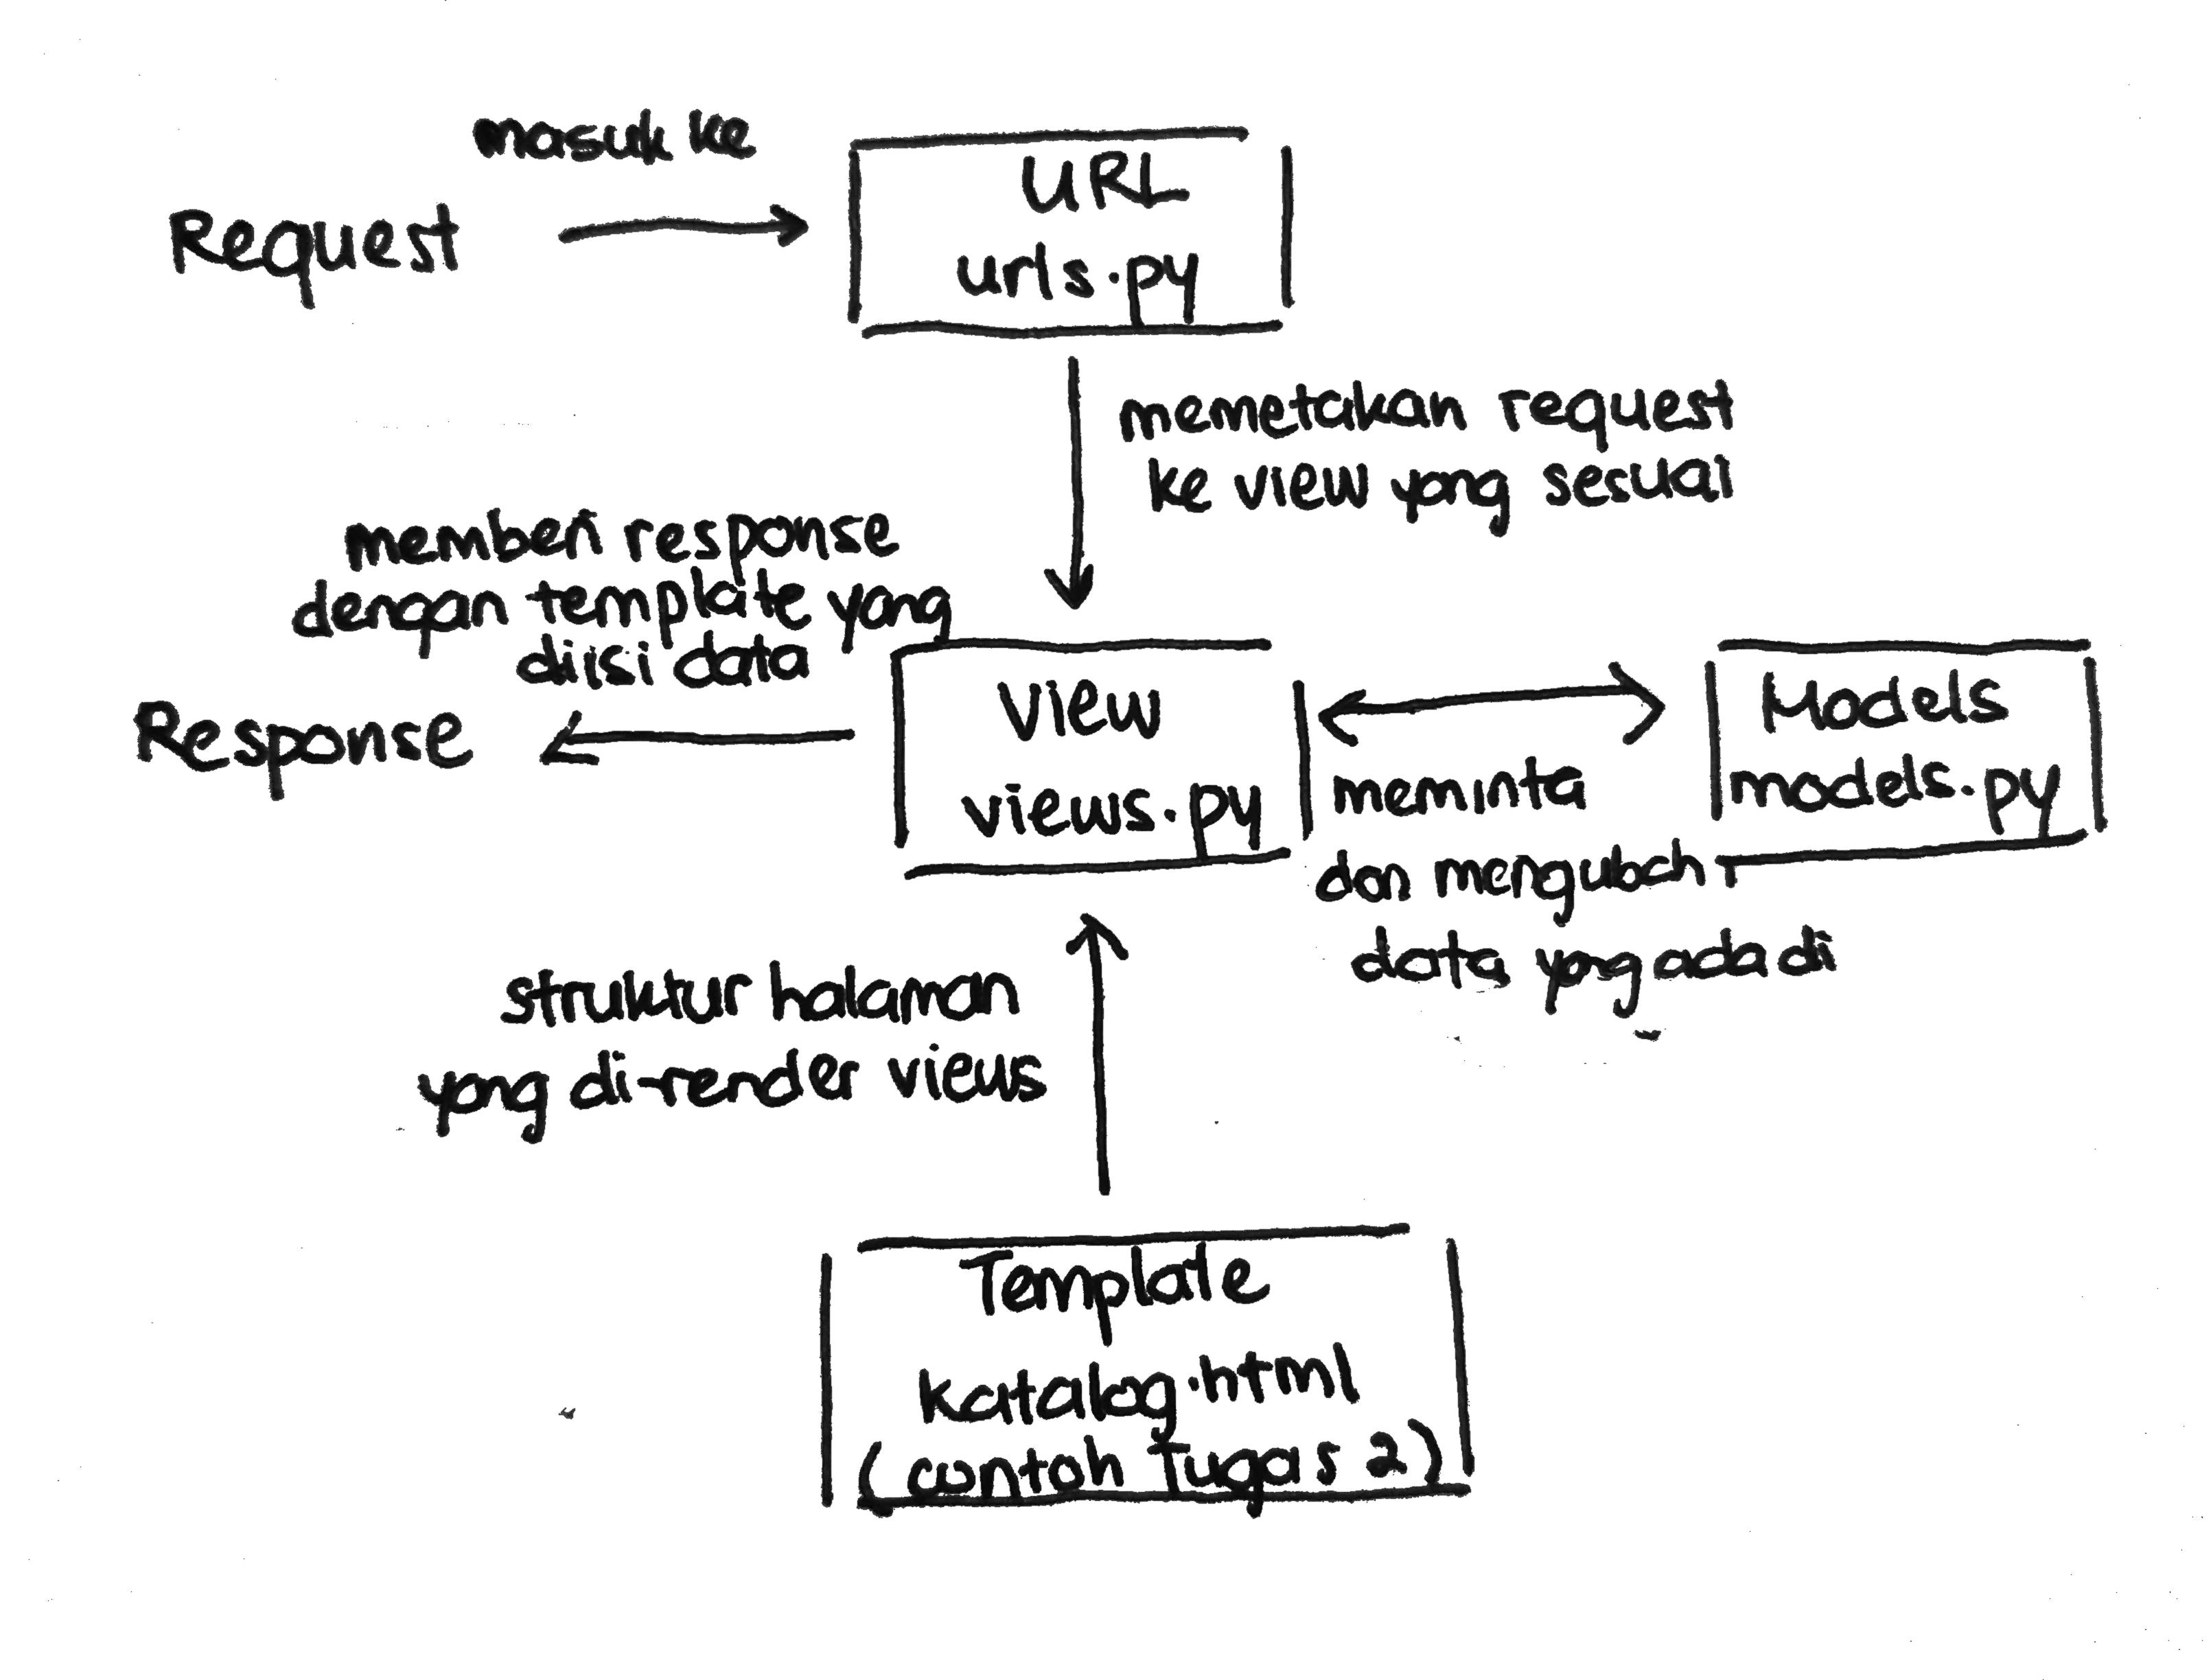 masuk ke
Request
URL
urls.py
memetakan request
ke view yang sesuai
memberi response
dengan template yang
diisi data
Response
View
views.py
meminta
dan mengubah
data yang ada di
Models
models.py
struktur halaman
yang di-render views
Template
katalog.html
(contoh Tugas 2)